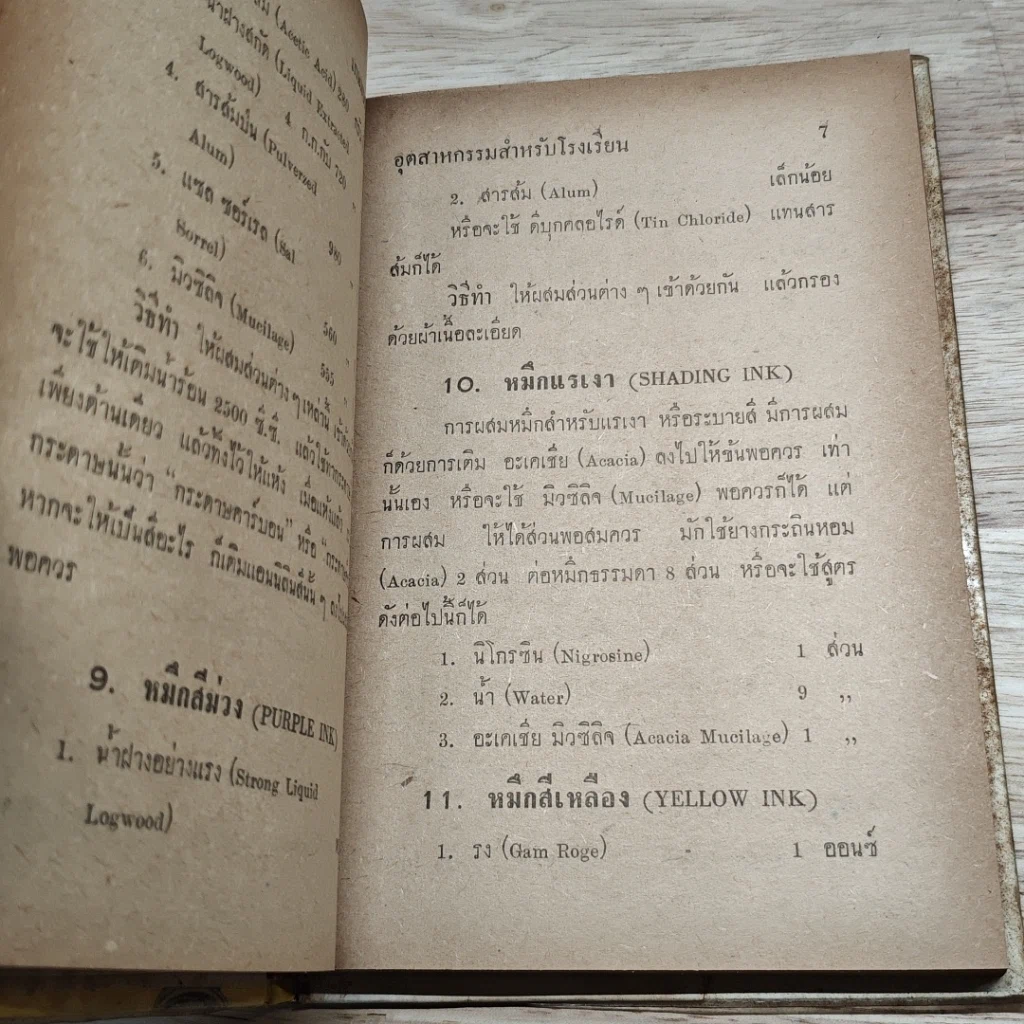 (Acetic Acid) 280
น้ำฝางสกัด (Liquid Extracted
Logwood) 4 ก.ก.กับ 720
4. สารส้มป่น (Pulverzed
Alum)
5. แซล ซอร์เรล (Sal 980
Sorrel)
6. มิวซิลิจ (Mucilage) 560 "
วิธีทำ ให้ผสมส่วนต่าง ๆ เหล่านี้ "
จะใช้ให้เติมน้ำร้อน 2500 ซี.ซี. แล้วใช้ทากระดาษ
เพียงด้านเดียว แล้วทิ้งไว้ให้แห้ง เมื่อแห้งแล้ว
กระดาษนั้นว่า “กระดาษคาร์บอน” หรือ
หากจะให้เป็นสีอะไร ก็เติมแอนนิลินสีนั้น ๆ
พอควร
9. หมึกสีม่วง (PURPLE INK)
1. น้ำฝางอย่างแรง (Strong Liquid
Logwood)
อุตสาหกรรมสำหรับโรงเรียน 7
2. สารส้ม (Alum) เล็กน้อย
หรือจะใช้ ดีบุกคลอไรด์ (Tin Chloride) แทนสาร
ส้มก็ได้
วิธีทำ ให้ผสมส่วนต่าง ๆ เข้าด้วยกัน แล้วกรอง
ด้วยผ้าเนื้อละเอียด
10. หมึกแรเงา (SHADING INK)
การผสมหมึกสำหรับแรเงา หรือระบายสี มีการผสม
ก็ด้วยการเติม อะเคเชีย (Acacia) ลงไปให้ข้นพอควร เท่า
นั้นเอง หรือจะใช้ มิวซิลิจ (Mucilage) พอควรก็ได้ แต่
การผสม ให้ได้ส่วนพอสมควร มักใช้ยางกระถินหอม
(Acacia) 2 ส่วน ต่อหมึกธรรมดา 8 ส่วน หรือจะใช้สูตร
ดังต่อไปนี้ก็ได้
1. นิโกรซิน (Nigrosine) 1 ส่วน
2. น้ำ (Water) 9 ,,
3. อะเคเชีย มิวซิลิจ (Acacia Mucilage) 1 ,,
11. หมึกสีเหลือง (YELLOW INK)
1. รง (Gam Roge) 1 ออนซ์